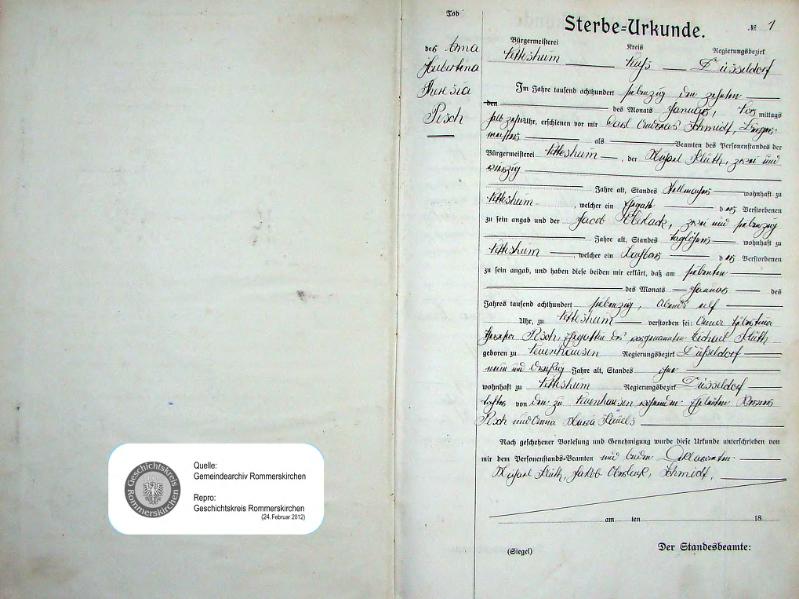 Tod
des Anna
Hubertina
Theresia
Pesch
Sterbe=Urkunde.
№ 1
Bürgermeisterei Kreis Regierungsbezirk
Nettesheim Neuß Düsseldorf
Im Jahre tausend achthundert siebenzig den zehnten
des Monats Januar, Vor mittags
halb zehn Uhr, erschienen vor mir Carl Andreas Schmidt, Bürger-
meister als Beamten des Personenstandes der
Bürgermeisterei Nettesheim, der Michael Kluth, zwei und
vierzig
Jahre alt, Standes wohnhaft zu
Nettesheim, welcher ein Ehegatte d er Verstorbenen
zu sein angab und der Jacob zwei und siebenzig
Jahre alt, Standes Taglöhner wohnhaft zu
Nettesheim, welcher ein Nachbar d er Verstorbenen
zu sein angab, und haben diese beiden mir erklärt, daß am siebenten
des Monats Januar des
Jahres tausend achthundert siebenzig, Abends elf
Uhr, zu Nettesheim verstorben sei: Anna Hubertina
Theresia Pesch Ehegattin des vorgenannten Michael Kluth
geboren zu Neuenhausen Regierungsbezirk Düsseldorf
neun und dreißig Jahre alt, Standes
wohnhaft zu Nettesheim Regierungsbezirk Düsseldorf
Tochter von den zu Neuenhausen Eheleuten
Pesch und Anna Maria
Nach geschehener Vorlesung und Genehmigung wurde diese Urkunde unterschrieben von
mir dem Personenstands-Beamten und beiden Declaranten
Michael Kluth, Jakob Schmidt,
am ten 18
(Siegel) Der Standesbeamte:
Geschichtskreis
Rommerskirchen
Quelle:
Gemeindearchiv Rommerskirchen
Repro:
Geschichtskreis Rommerskirchen
(24.Februar 2012)